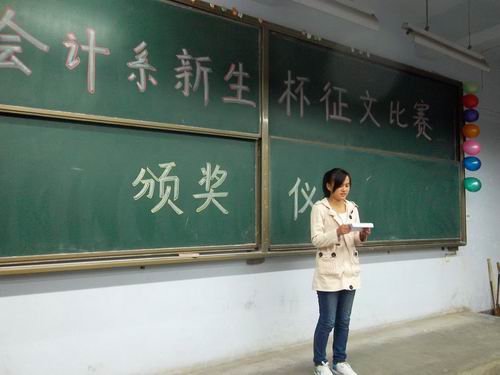 会计系新生杯征文比赛
颁奖仪